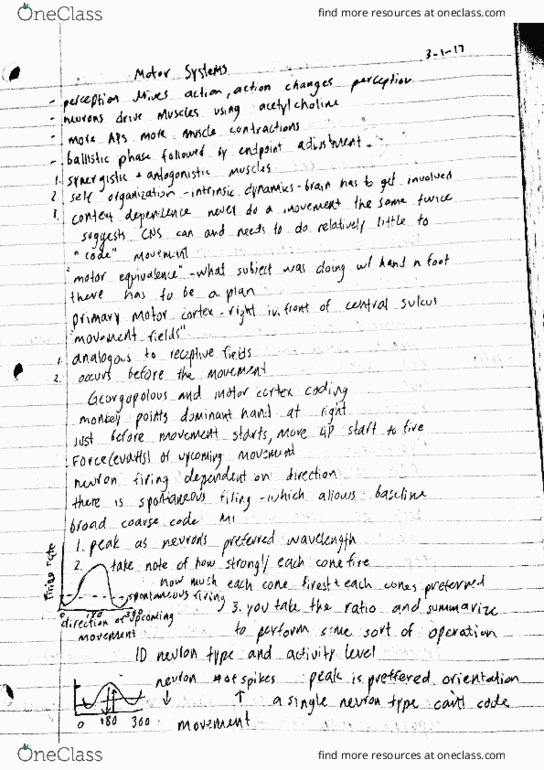 OneClass
find more resources at oneclass.com
3-1-17
Motor Systems
- perception drives action, action changes perception
- neurons drive muscles using acetylcholine
- more APs more muscle contractions
- ballistic phase followed by endpoint adjustment
1. synergistic + antagonistic muscles
2 self organization - intrinsic dynamics - brain has to get involved
3. context dependence never do a movement the same twice
suggests CNS can and needs to do relatively little to
"code" movement
"motor equivalence" - what subject was doing w/ hand n foot
there has to be a plan
primary motor cortex - right in front of central sulcus
"movement fields"
1. analogous to receptive fields
2. occurs before the movement
Georgopolous and motor cortex coding
monkey points dominant hand at right
just before movement starts, more AP start to fire
of upcoming movement
neuron firing dependent on direction
there is spontaneous firing - which allows baseline
broad coarse code M1
1. peak as neurons preferred wavelength
2. take note of how strongly each cone fire
how much each cone fires + each cones preferred
3. you take the ratio and summarize
to perform some sort of operation
Firing rate
spontaneous firing
0 180 360
direction of upcoming
movement
ID neuron type and activity level
neuron # of spikes peak is preffered orientation
↓ ↑ a single neuron type can't code
movement
0 180 360
OneClass
find more resources at oneclass.com